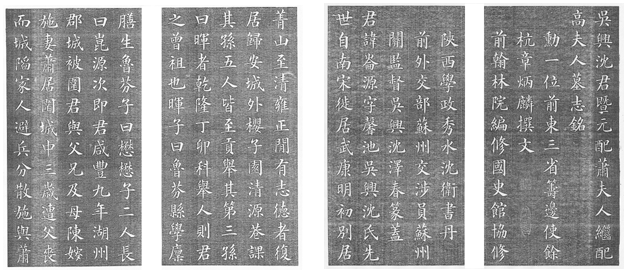 吳興沈君曁元配蕭夫人繼配
高夫人墓志銘
勳一位前東三省籌邊使餘
杭章炳麟撰文
前翰林院編修國史館協修
陝西學政秀水沈衛書丹
前外交部蘇州交涉員蘇州
關監督吳興沈澤春篆蓋
君諱崙源字馨池吳興沈氏先
世自南宋徙居武康明初別居
菁山至清雍正間有志德者復
居歸安城外櫻子清源巷課
其孫五人皆至貢舉其第三孫
曰暉者乾隆丁卯科舉人則君
之曾祖也暉子曰魯芬縣學廩
膳生魯芬子曰懋懋子二人長
曰崑源次即君咸豐九年湖州
郡城被圍君與父兄及母陳嫂
施妻蕭居圍城中三歲遭父喪
而城陷家人避兵分散施與蕭